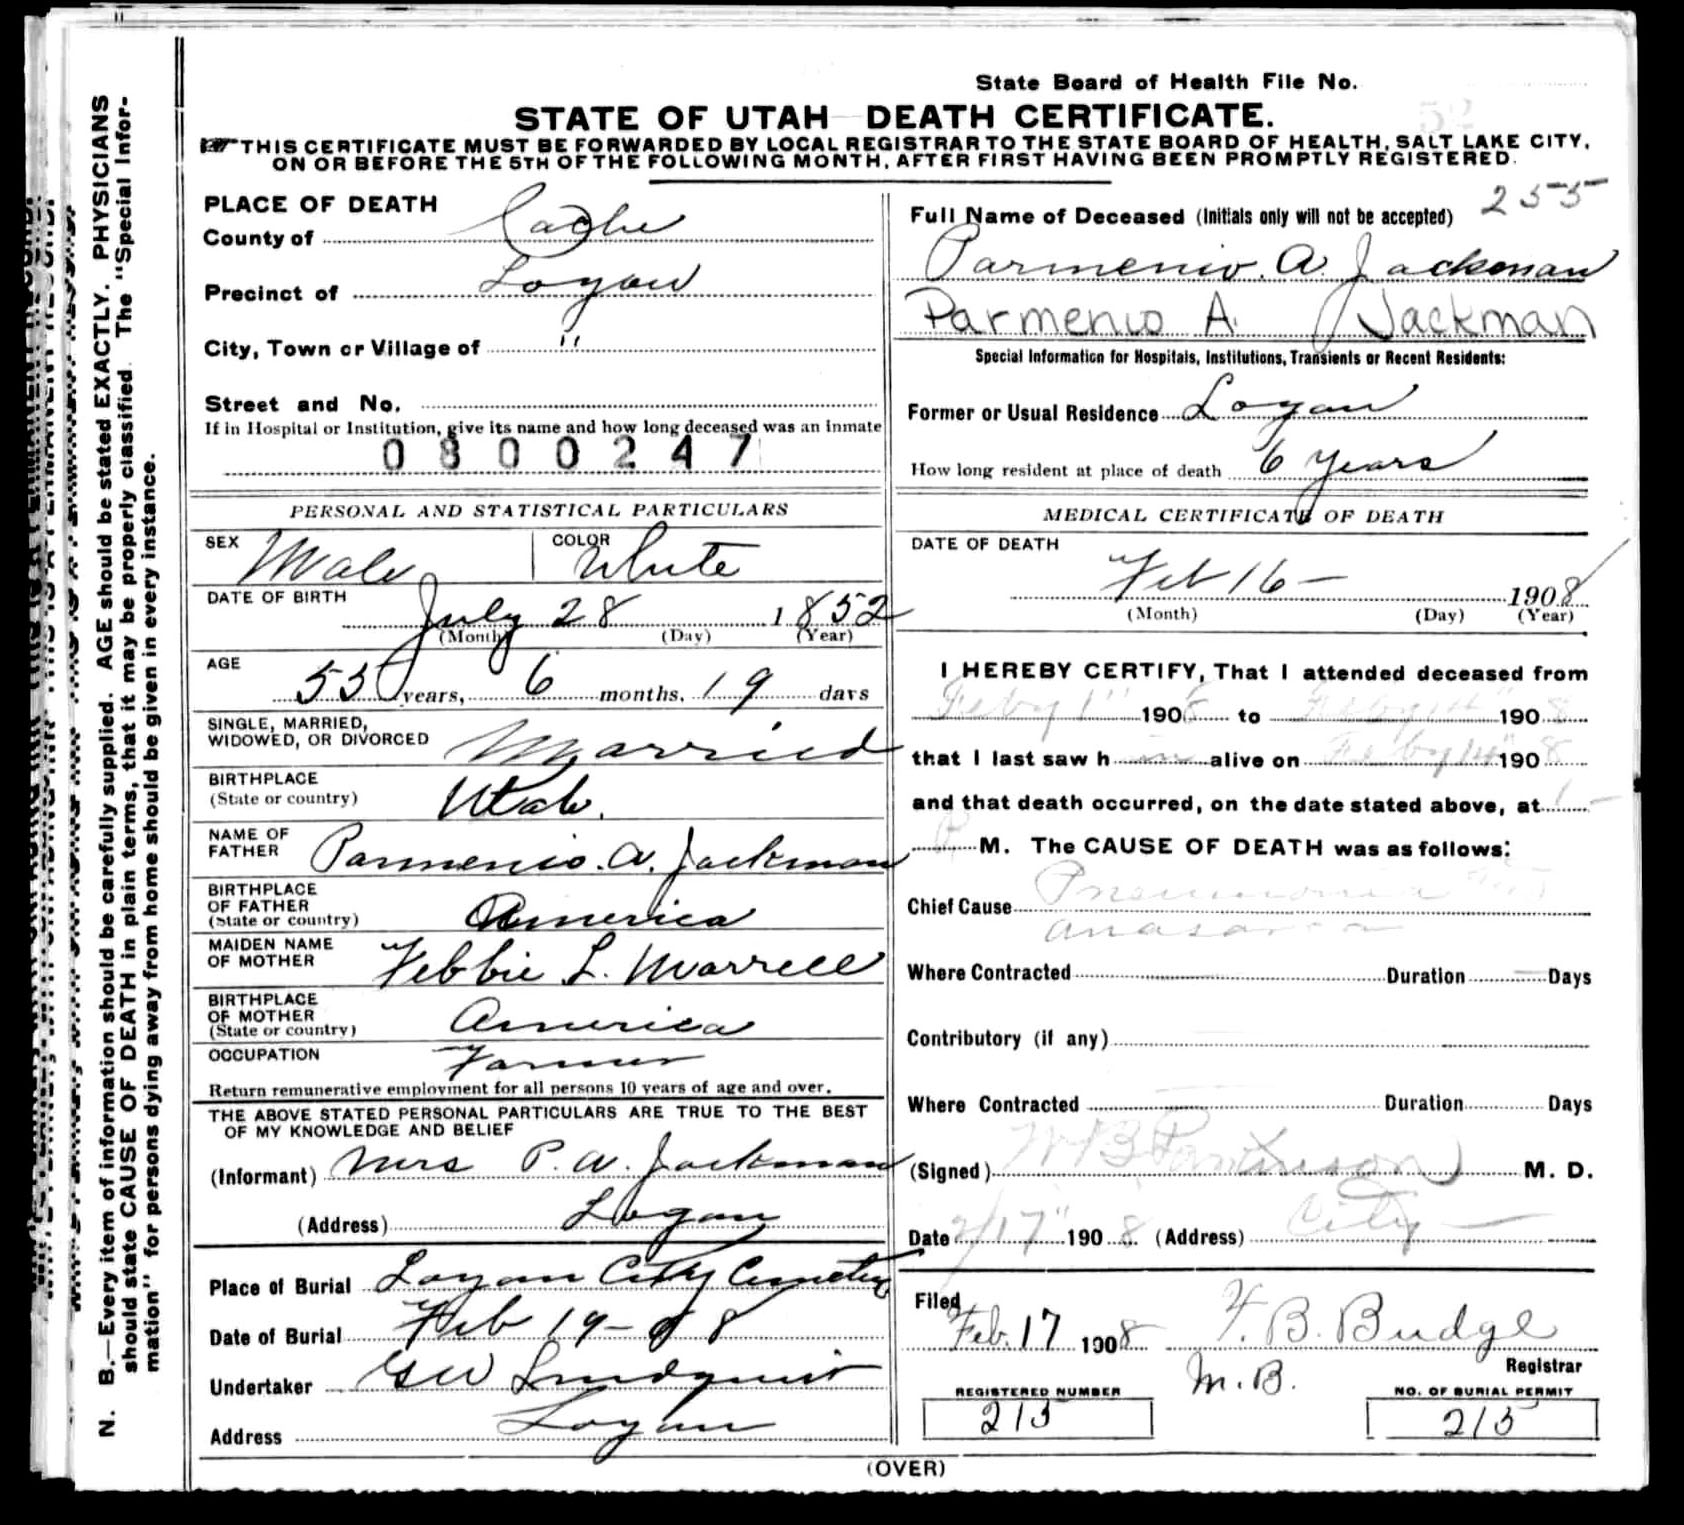 State Board of Health File No.
52
STATE OF UTAH DEATH CERTIFICATE.
THIS CERTIFICATE MUST BE FORWARDED BY LOCAL REGISTRAR TO THE STATE BOARD OF HEALTH, SALT LAKE CITY,
ON OR BEFORE THE 5TH OF THE FOLLOWING MONTH, AFTER FIRST HAVING BEEN PROMPTLY REGISTERED.
N. B.—Every item of information should be carefully supplied. AGE should be stated EXACTLY. PHYSICIANS
should state CAUSE OF DEATH in plain terms, that it may be properly classified. The "Special Infor-
mation" for persons dying away from home should be given in every instance.
PLACE OF DEATH
County of Cache
Precinct of Logan
City, Town or Village of "
Street and No.
If in Hospital or Institution, give its name and how long deceased was an inmate
0800247
PERSONAL AND STATISTICAL PARTICULARS
SEX Male COLOR White
DATE OF BIRTH
July 28 1852
(Month) (Day) (Year)
AGE
55 years, 6 months, 19 days
SINGLE, MARRIED,
WIDOWED, OR DIVORCED Married
BIRTHPLACE
(State or country) Utah.
NAME OF
FATHER Parmenio. A. Jackman
BIRTHPLACE
OF FATHER
(State or country) America
MAIDEN NAME
OF MOTHER Febbie L. Morrell
BIRTHPLACE
OF MOTHER
(State or country) America
OCCUPATION Farmer
Return remunerative employment for all persons 10 years of age and over.
THE ABOVE STATED PERSONAL PARTICULARS ARE TRUE TO THE BEST
OF MY KNOWLEDGE AND BELIEF
(Informant) Mrs P. A. Jackman
(Address) Logan
Place of Burial Logan City Cemetery
Date of Burial Feb 19-08
Undertaker GW Lindquist
Address Logan
Full Name of Deceased (Initials only will not be accepted) 255
Parmenio. A. Jackman
Parmenio A. Jackman
Special Information for Hospitals, Institutions, Transients or Recent Residents:
Former or Usual Residence Logan
How long resident at place of death 6 years
MEDICAL CERTIFICATE OF DEATH
DATE OF DEATH
Feb 16 — 1908
(Month) (Day) (Year)
I HEREBY CERTIFY, That I attended deceased from
Feby 1" 190 to Feby 14" 1908
that I last saw him alive on Feby 14" 1908
and that death occurred, on the date stated above, at 1 —
P M. The CAUSE OF DEATH was as follows:
Chief Cause Pneumonia
anasarca
Where Contracted Duration — Days
Contributory (if any)
Where Contracted Duration Days
(Signed) W B Parkinson M. D.
Date 2/17" 1908 (Address) City —
Filed
Feb. 17 1908 F. B. Budge
Registrar
M. B.
REGISTERED NUMBER
215
NO. OF BURIAL PERMIT
215
(OVER)